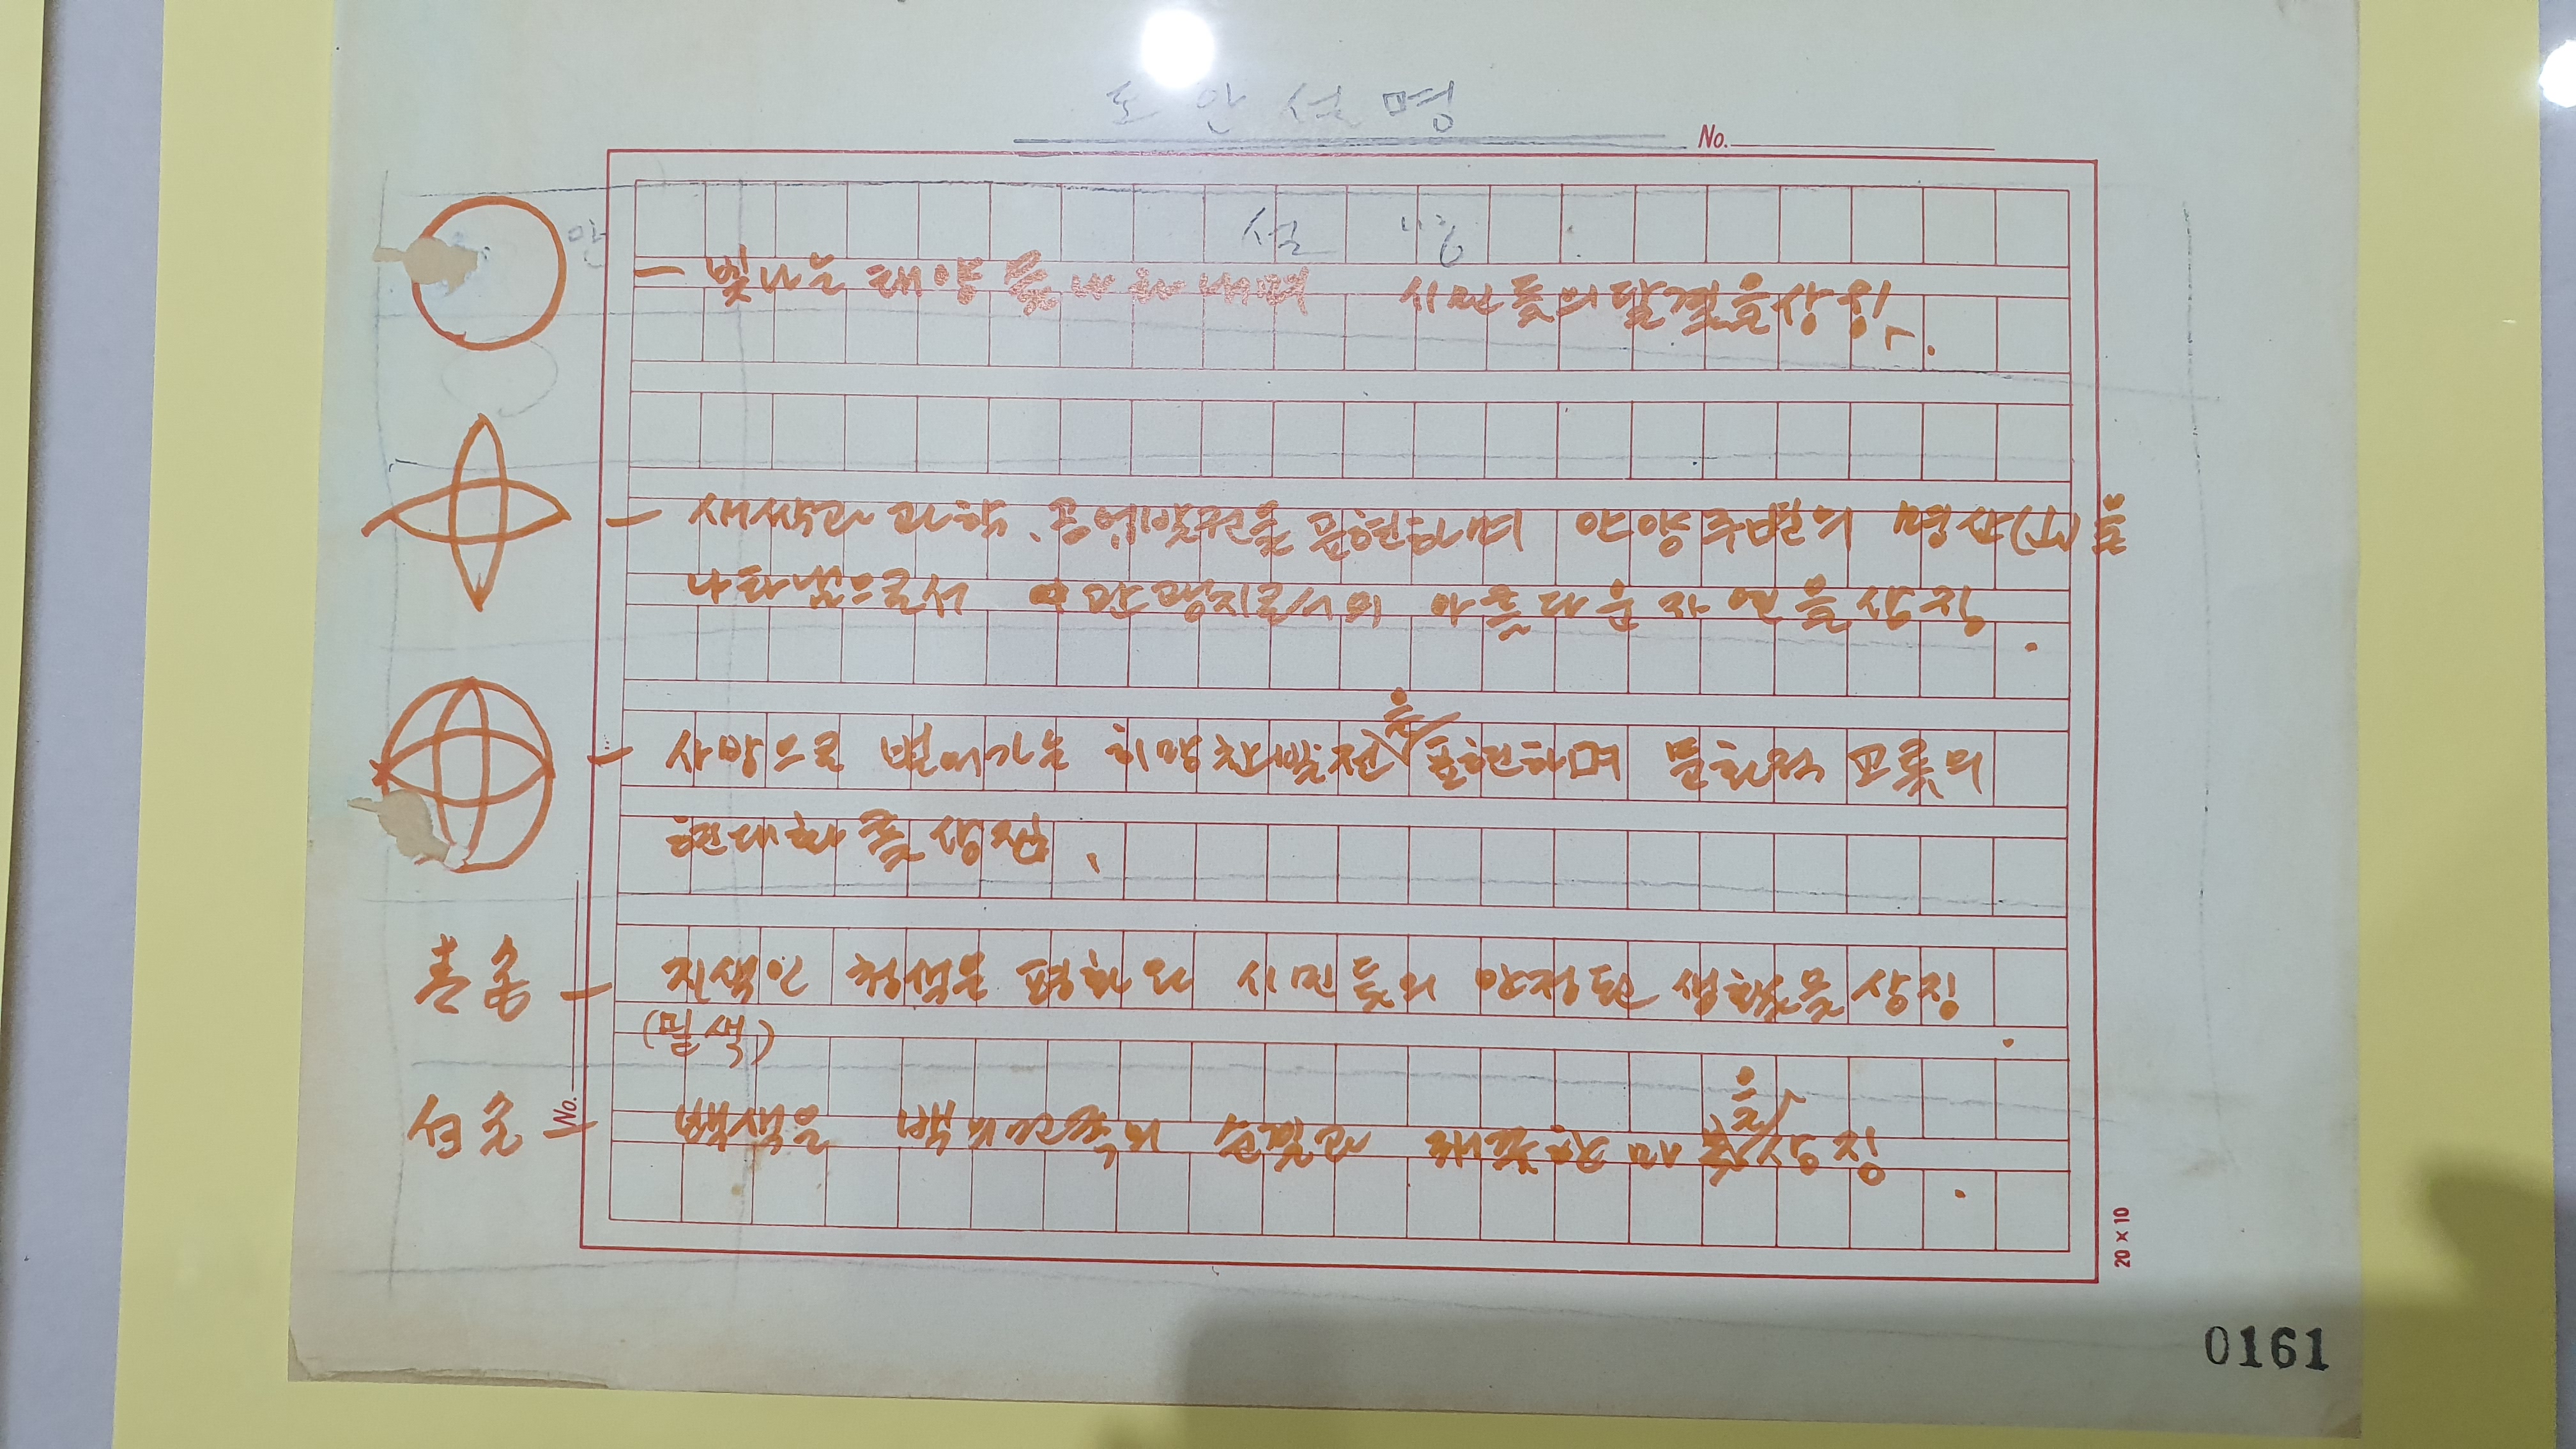 도안설명
No.
안 설명
— 빛나는 태양을 나타내며 시민들의 단결을 상징.
— 새싹과 과학, 공업 표현하며 안양주변의 명산(山)을
나타냄으로서 관광지로서의 아름다운 자연을 상징.
— 사방으로 벋어가는 희망찬 발전을 표현하며 문화적 교류의
현대화를 상징.
靑色 — 진색인 청색은 평화와 시민들의 안정된 생활을 상징.
(밑색)
白色 — 백색은 백의민족의 순결과 깨끗한 마음을 상징.
No.
20×10
0161